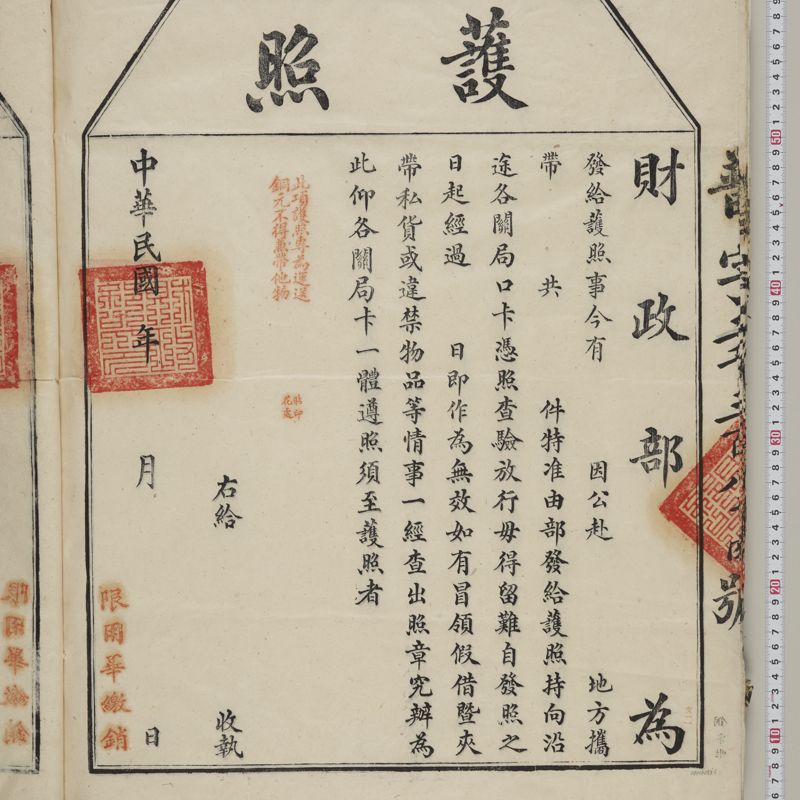 護照
財政部為
發給護照事今有　因公赴　地方攜
帶　共　件特准由部發給護照持向沿
途各關局口卡憑照查驗放行毋得留難自發照之
日起經過　日即作為無效如有冒領假借暨夾
帶私貨或違禁物品等情事一經查出照章究辦為
此仰各關局卡一體遵照須至護照者
此項護照專為運送
銅元不得夾帶他物
右給　收執
中華民國　年　月　日
限用畢繳銷
號